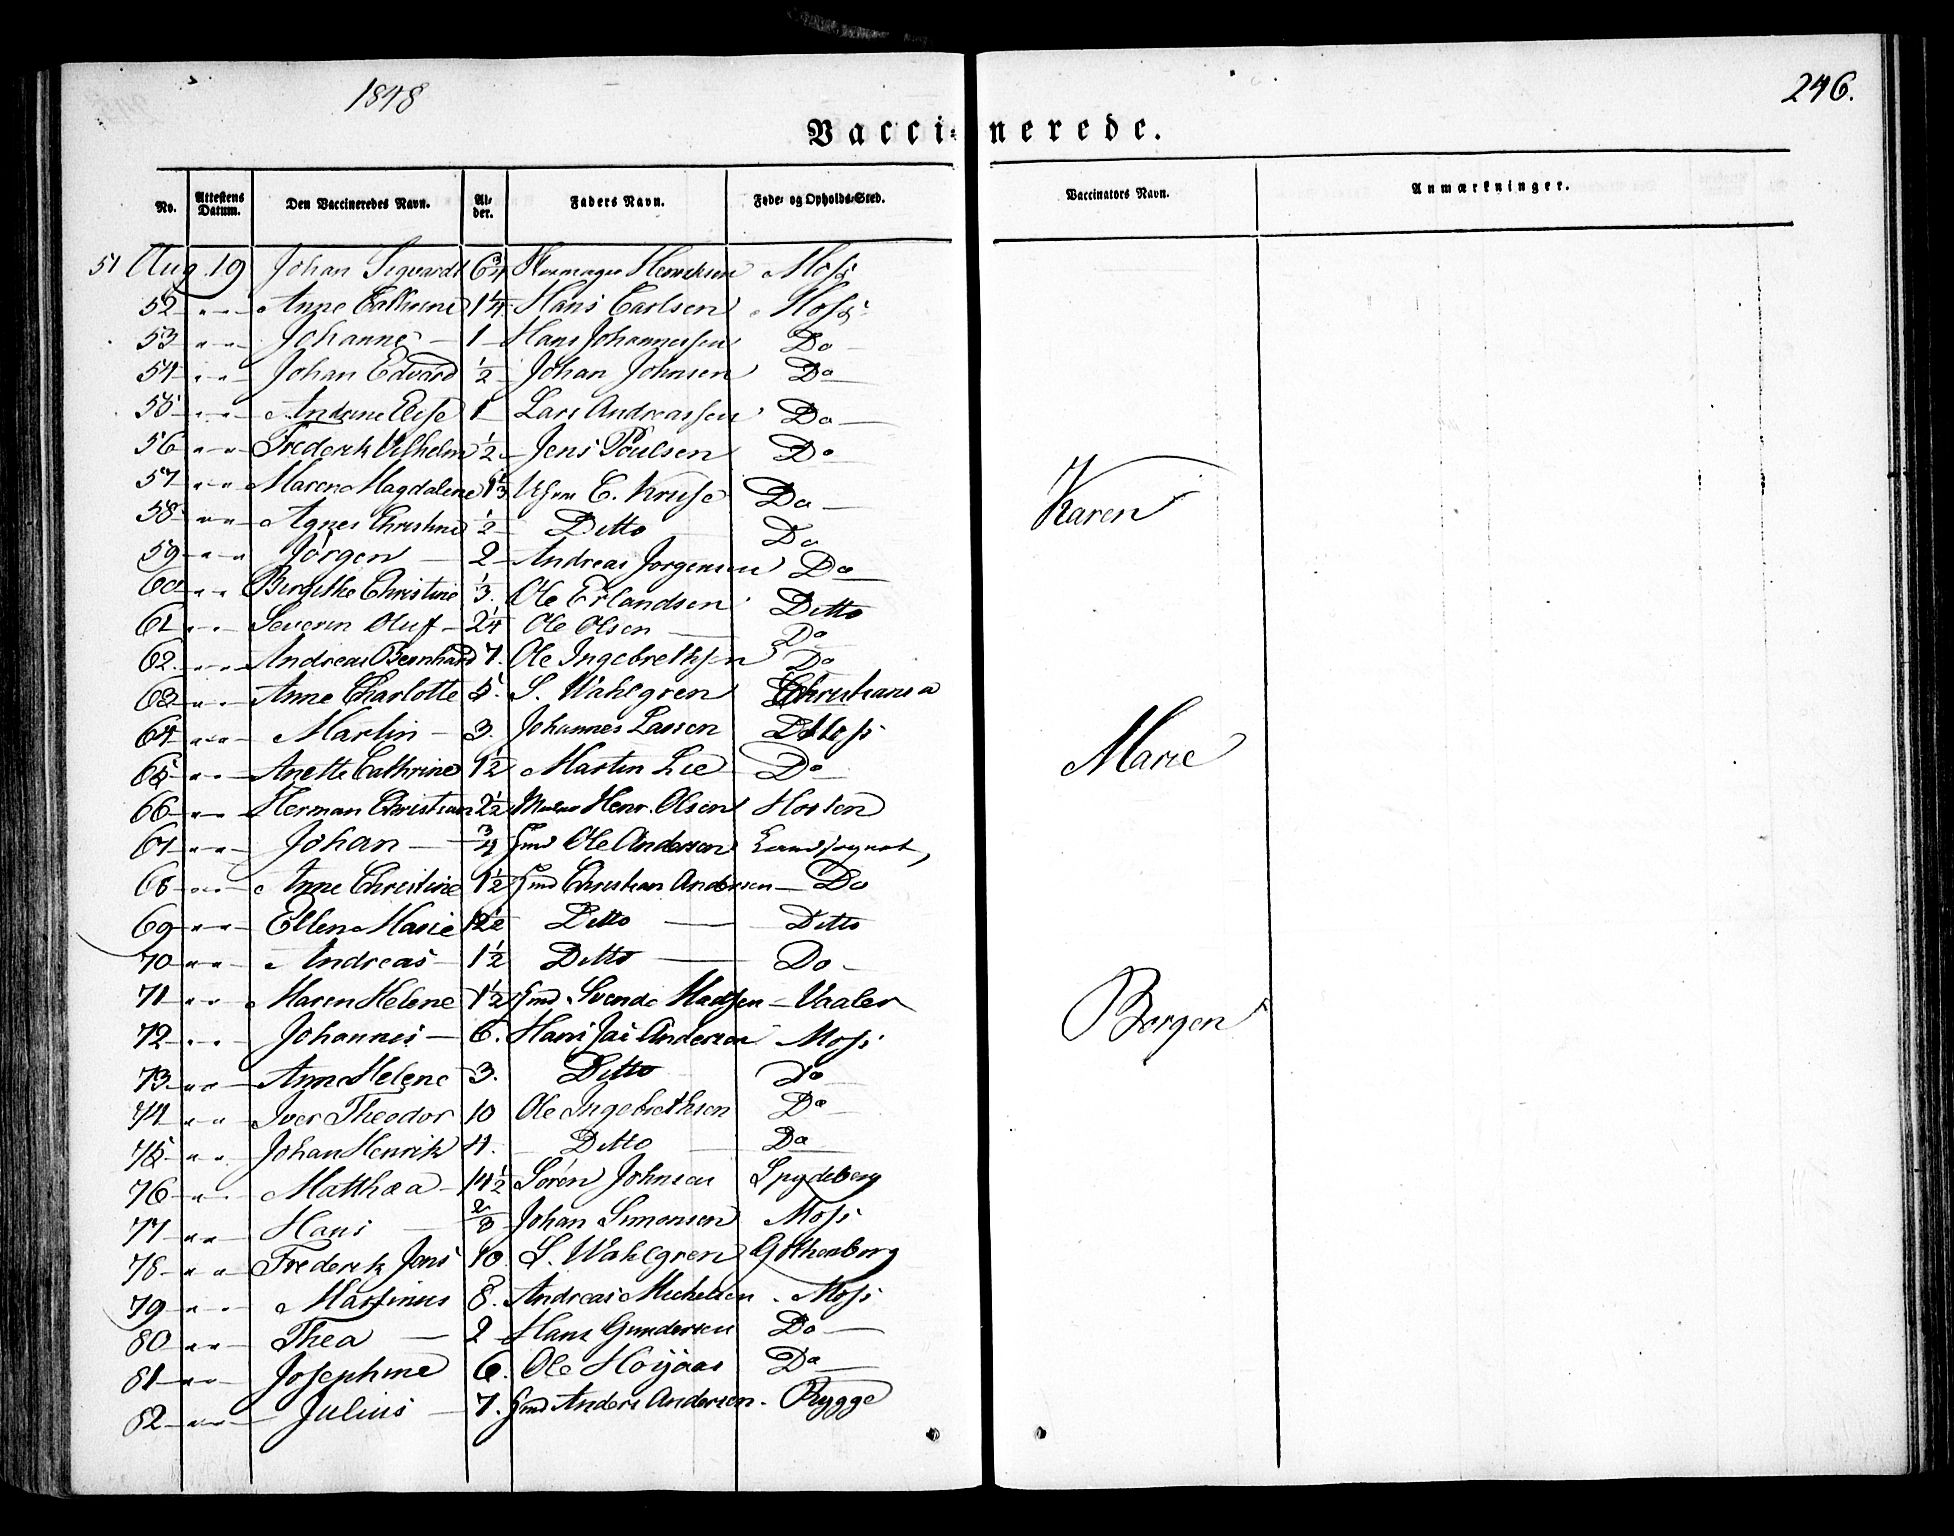 1848
246.
Vaccinerede.
No. Attestens Datum. Den Vaccineredes Navn. Alder. Faders Navn. Føde- og Opholds-Sted. Vaccinators Navn. Anmærkninger.
51 Aug. 19 Johan Siguardt 6 3/4 Henriksen Moss
52 " " Anne Cathrine 1 1/4 Hans Carlsen Moss
53 " " Johanne 1 Hans Johannessen Do
54 " " Johan Edvard 1/2 Johan Johnsen Do
55 " " Andrine Elise 1 Lars Andreassen Do
56 " " Frederik Vilhelm 1/2 Jens Poulsen Do
57 " " Maren Magdalene 1 1/3 C. Kruse Do
58 " " Agnes Christine 1/2 Ditto Do
59 " " Jörgen 2 Andreas Jorgensen Do
60 " " Birgitthe Christine 1/3. Ole Erlandsen Ditto
61 " " Severin Oluf 2 1/4 Ole Olsen Do
62. " " Andreas Bernhard 7. Ole Ingebrethsen Do
63 " " Anne Charlotte 5. S. Wahlgren Christiania
64 " " Martin 3. Johannes Lassen Moss
65 " " Anette Cathrine 1 1/2 Martin Lie Do
66 " " Herman Christian 2 1/2 Henr. Olsen Horten
67 " " Johan 3/4 Gmd Ole Andersen Landsognet,
68 " " Anne Christine 1 1/2 Gmd Christian Andersen Do
69 " " Ellen Marie 12 1/2 Ditto Ditto
70 " " Andreas 1 1/2 Ditto Do
71 " " Maren Helene 1 1/2 Gmd Svend Madsen Vaaler
72 " " Johannes 6. Hans Jac Andersen Moss
73 " " Anne Helene 3. Ditto Do
74 " " Iver Theodor 10 Ole Ingebrethsen Do
75 " " Johan Henrik 4. Ditto Do
76 " " Matthea 14 1/2 Sörén Johnsen Spydeberg
77 " " Hans 2/3 Johan Simonsen Moss
78 " " Frederik Jens 10. S. Wahlgren Gothenborg
79 " " Martinus 8. Andreas Michelsen Moss
80 " " Thea 2 Hans Gundersen Do
81 " " Josephine 6. Ole Höyaas Do
82 " " Julius 7. Gmd Anders Andersen Rygge
Karen
Marie
Borgen